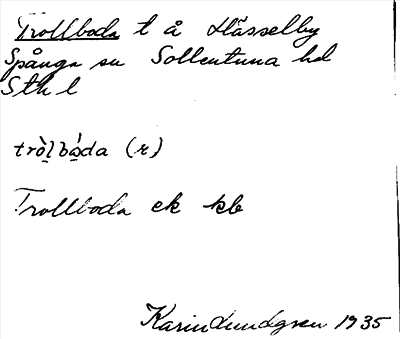 Trollboda t å Hässelby
Spånga sn Sollentuna hd
Sth l
tròlbóda (r)
Trollboda ek kb
Karin Lundgren 1935